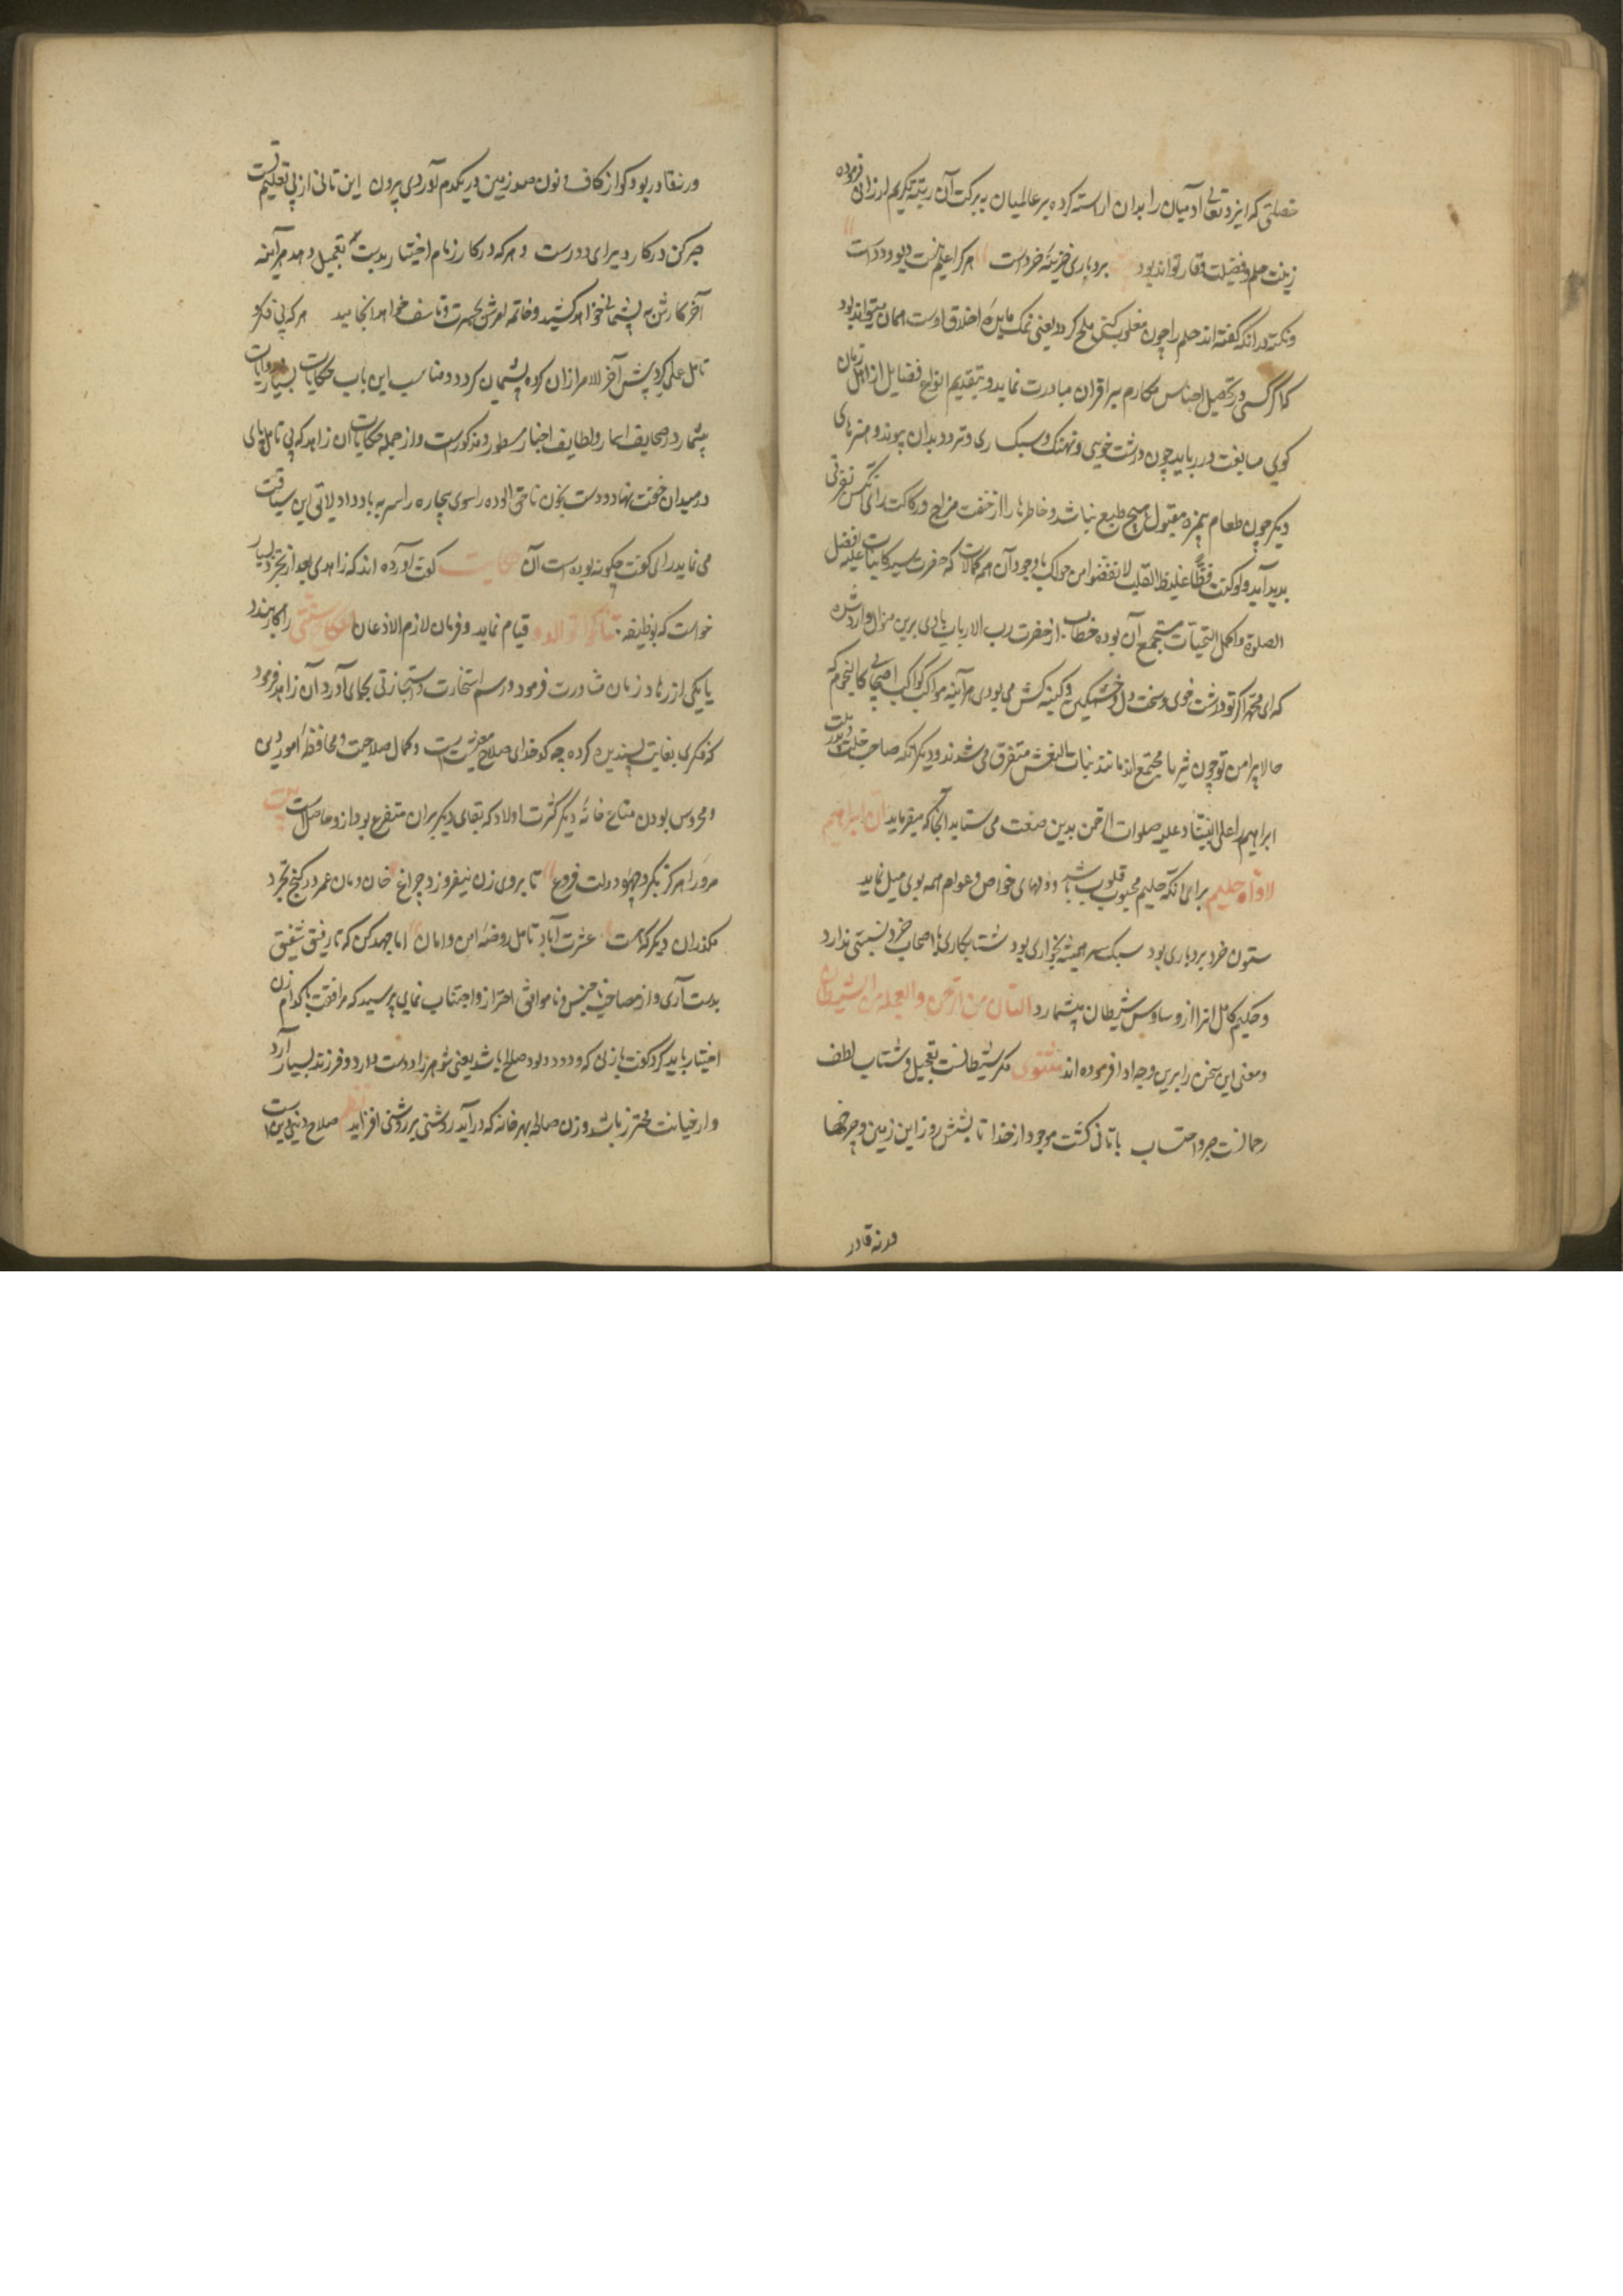 خصلتی که ایزد تعالی آدمیان را بدان آراسته کرده بر عالمیان به برکت آن رتبهٔ تکریم ارزانی فرموده
زینت حلم و فضیلت وقار تواند بود بردباری خزینهٔ خرد است هر کرا حلم نیست دیو و دد است
ونکته در آنکه گفته اند حلم را چون مغلوب کنی ملح گردد یعنی نمک مایدهٔ اخلاق اوست همان میتواند بود
که اگر کسی در تحصیل اجناس مکارم بر اقران مبادرت نماید و بتقدیم انواع فضایل از اهل زمان
گوی مسابقت در رباید چون درشت خویی و تهتک و سبک سری و تردد بدان پیوندد هنرهای
دیگر چون طعام بی مزه مقبول هیچ طبع نباشد و خاطرها را از خفت مزاج و رکاکت رای کس نفرتی
بدید آید ولو کنت فظا غلیظ القلب لا نفضوا من حولک با وجود آن همه کمالات که حضرت سید کاینات علیه افضل
الصلوة و اکمل التحیات مستجمع آن بوده خطاب از حضرت رب الارباب با وی برین منوال وارد شده
که ای محمد اگر تو درشت خوی و سخت دل و خشمگین و کینه کش می بودی هر آینه مواکب کواکب اصحابی کالنجوم که
حالا پیرامن تو چون ثریا مجتمع اند مانند بنات النعش متفرق می شدند و دیگر آنکه صاحب خلت و ملت
ابراهیم را علی نبینا و علیه صلوات الرحمن بدین صفت می ستاید آنجا که میفرماید ان ابراهیم
لاواه حلیم برای آنکه حلیم محبوب قلوب باشد و دلهای خواص و عوام همه بوی میل نماید
ستون خرد بردباری بود سبک سر همیشه بخواری بود شتابکاری با اصحاب خرد نسبتی ندارد
و حکیم کامل آنرا از وساوس شیطان میشمارد التأن من الرحمن والعجلة من الشیطان
ومعنی این سخن را برین وجه ادا فرموده اند مثنوی مکر شیطانست تعجیل و شتاب لطف
رحمانست صبر و احتساب با تانی گشت موجود از خدا تا بشش روز این زمین و چرخها
ورنه قادر
ورنه قادر بود کو از کاف و نون صد زمین در یکدم آوردی برون این تانی از پی تعلیم تست
صبر کن در کار دیر آی و درست و هر که در کار زمام اختیار بدست تعجیل دهد هر آینه
آخر کارش به پشیمانی خواهد کشید و خاتمه امرش بحسرت و تاسف خواهد انجامید هر که بی فکر و
تامل عملی کرد پیش آخر الامر از آن کرده پشیمان گردد و مناسب این باب حکایات بسیار و روایات
بیشمار در صحایف اسمار و لطایف اخبار مسطور و مذکورست و از جمله حکایات آن زاهد که بی تامل پای
در میدان خفت نهاد و دست بخون ناحق آلوده راسوی بیچاره را سر به باد داد لاتق این سیاقت
می نماید رای گفت چگونه بوده است آن حکایت گفت آورده اند که زاهدی بعد از تجرد بسیار
خواست که بوظیفه تناکحوا توالدوا قیام نماید و فرمان لازم الاذعان النکاح سنتی را کار بندد
با یکی از زهاد زمان مشاورت فرمود و رسم استخارت و استجازتی بجای آورد آن زاهد فرمود
که فکری بغایت پسندیده کرده چه کدخدای صلاح معیشت است و کمال صلاحیت و محافظهٔ امور دین
و محروس بودن متاع خانه دیگر کثرت اولاد که بقای دیگر بران متفرع بود ازو حاصل است بیت
مرد را هرگز نگیرد چهره دولت فروغ تا بروی زن نیفروزد چراغ خان و مان عمر در کنج تجرد
مگذران دیگر که هست عشرت آباد تاهل روضهٔ امن و امان اما جهد کن که تا رفیق شفیق
بدست آری و از مصاحب ناجنس و ناموافق احتراز و اجتناب نمای پرسید که مرافقت با کدام زن
اختیار باید کرد گفت با زنی که ودود و ولود و صالحه باشد یعنی شوهر را دوست دارد و فرزند بسیار آرد
و از خیانت محترز باشد و زن صالحه بهر خانه که در آید روشنی بر روشنی افزاید نظم صلاح دنیی و دین است